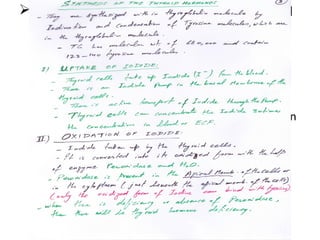 SYNTHESIS OF THE THYROID HORMONES
- They are synthesized with in Thyroglobulin molecule by
Iodination and condensation of Tyrosine molecules, which are
in the Thyroglobulin molecule.
- TG has molecular wt of 660,000 and contain
123 tyrosine molecules.
I) UPTAKE OF IODIDE:
- Thyroid cells take up Iodide (I⁻) from the blood.
- There is an Iodide Pump in the basal Membrane of the
thyroid cells.
- There is active transport of Iodide through the Pump.
- Thyroid cells can concentrate the Iodide
the concentration in blood or ECF.
II.) OXIDATION OF IODIDE:
- Iodide taken up by the thyroid cells.
- It is converted into its oxidized form with the help
of enzyme Peroxidase and H₂O₂.
- Peroxidase is present in the Apical Memb of the cells or
in the cytoplasm (just beneath the apical memb of the cells)
(only the oxidized form of Iodine can bind with tyrosine)
- When there is deficiency or absence of Peroxidase,
then there will be thyroid hormone deficiency.
n